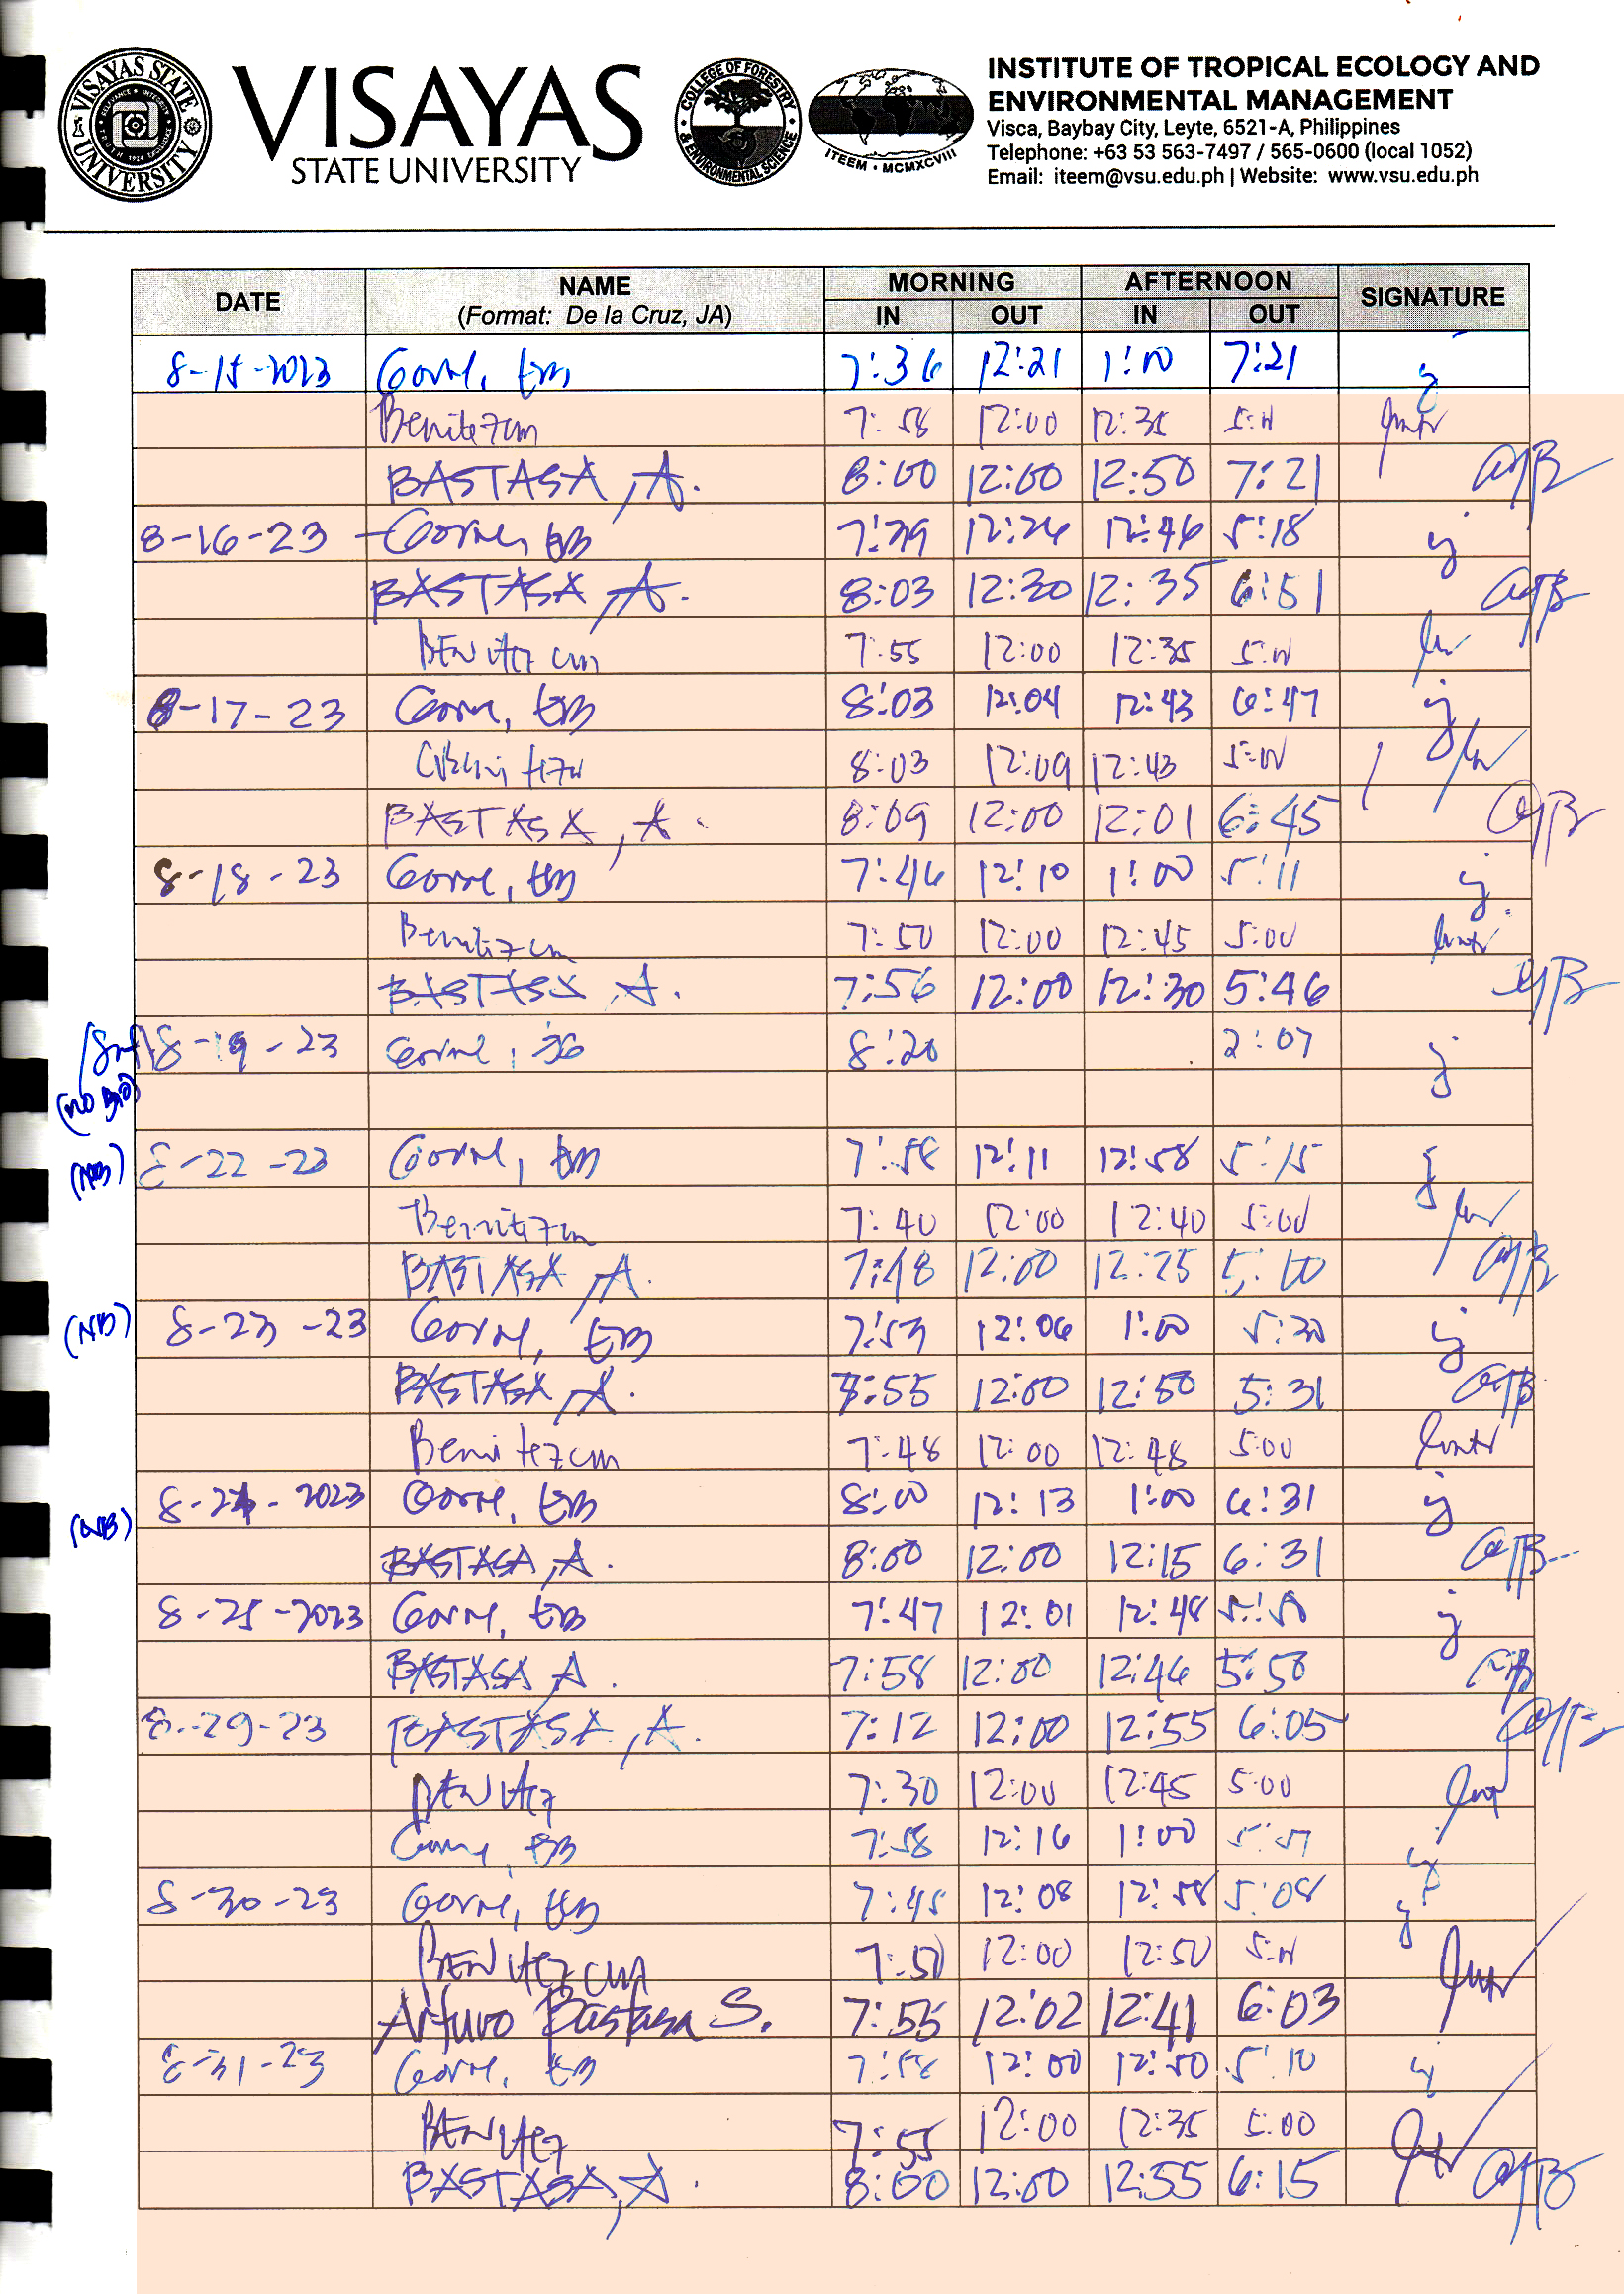 VISAYAS STATE UNIVERSITY
VISAYAS
STATE UNIVERSITY
COLLEGE OF FORESTRY & ENVIRONMENTAL SCIENCE
ITEEM • MCMXCVIII
INSTITUTE OF TROPICAL ECOLOGY AND
ENVIRONMENTAL MANAGEMENT
Visca, Baybay City, Leyte, 6521-A, Philippines
Telephone: +63 53 563-7497 / 565-0600 (local 1052)
Email: iteem@vsu.edu.ph | Website: www.vsu.edu.ph
DATE NAME MORNING AFTERNOON SIGNATURE
(Format: De la Cruz, JA) IN OUT IN OUT
8-15-2023 Gorne, EB 7:36 12:21 1:00 7:21
Benitez cm 7:58 12:00 12:35 5:00
BASTASA, A. 8:00 12:00 12:50 7:21
8-16-23 Gorne, EB 7:39 12:26 12:46 5:18
BASTASA, A. 8:03 12:30 12:35 6:51
BENitez cm 7:55 12:00 12:35 5:00
8-17-23 Gorne, EB 8:03 12:04 12:43 6:47
Benitez 8:03 12:09 12:43 5:00
BASTASA, A. 8:09 12:00 12:01 6:45
8-18-23 Gorne, EB 7:46 12:10 1:00 5:11
Benitez cm 7:50 12:00 12:45 5:00
BASTASA, A. 7:56 12:00 12:30 5:46
8-19-23 Gorne, 8:20 2:07
(NO BIO)
(NB) 8-22-23 Gorne, EB 7:58 12:11 12:58 5:15
Benitez cm 7:40 12:00 12:40 5:00
BASTASA, A. 7:48 12:00 12:25 5:10
(NB) 8-23-23 Gorne, EB 7:53 12:06 1:00 5:30
BASTASA, A. 7:55 12:00 12:50 5:31
Benitez cm 7:48 12:00 12:48 5:00
(NB) 8-24-2023 Gorne, EB 8:00 12:13 1:00 6:31
BASTASA, A. 8:00 12:00 12:15 6:31
8-25-2023 Gorne, EB 7:47 12:01 12:48 5:50
BASTASA, A. 7:58 12:00 12:46 5:50
8-29-23 BASTASA, A. 7:12 12:00 12:55 6:05
BENitez 7:30 12:00 12:45 5:00
Gorne, EB 7:58 12:16 1:00
8-30-23 Gorne, EB 7:45 12:08 12:58 5:08
BENitez cm 7:50 12:00 12:50 5:00
Arturo Bastasa S. 7:55 12:02 12:41 6:03
8-31-23 Gorne, EB 7:58 12:00 12:50 5:10
BENitez 7:55 12:00 12:35 5:00
BASTASA, A. 8:00 12:00 12:55 6:15